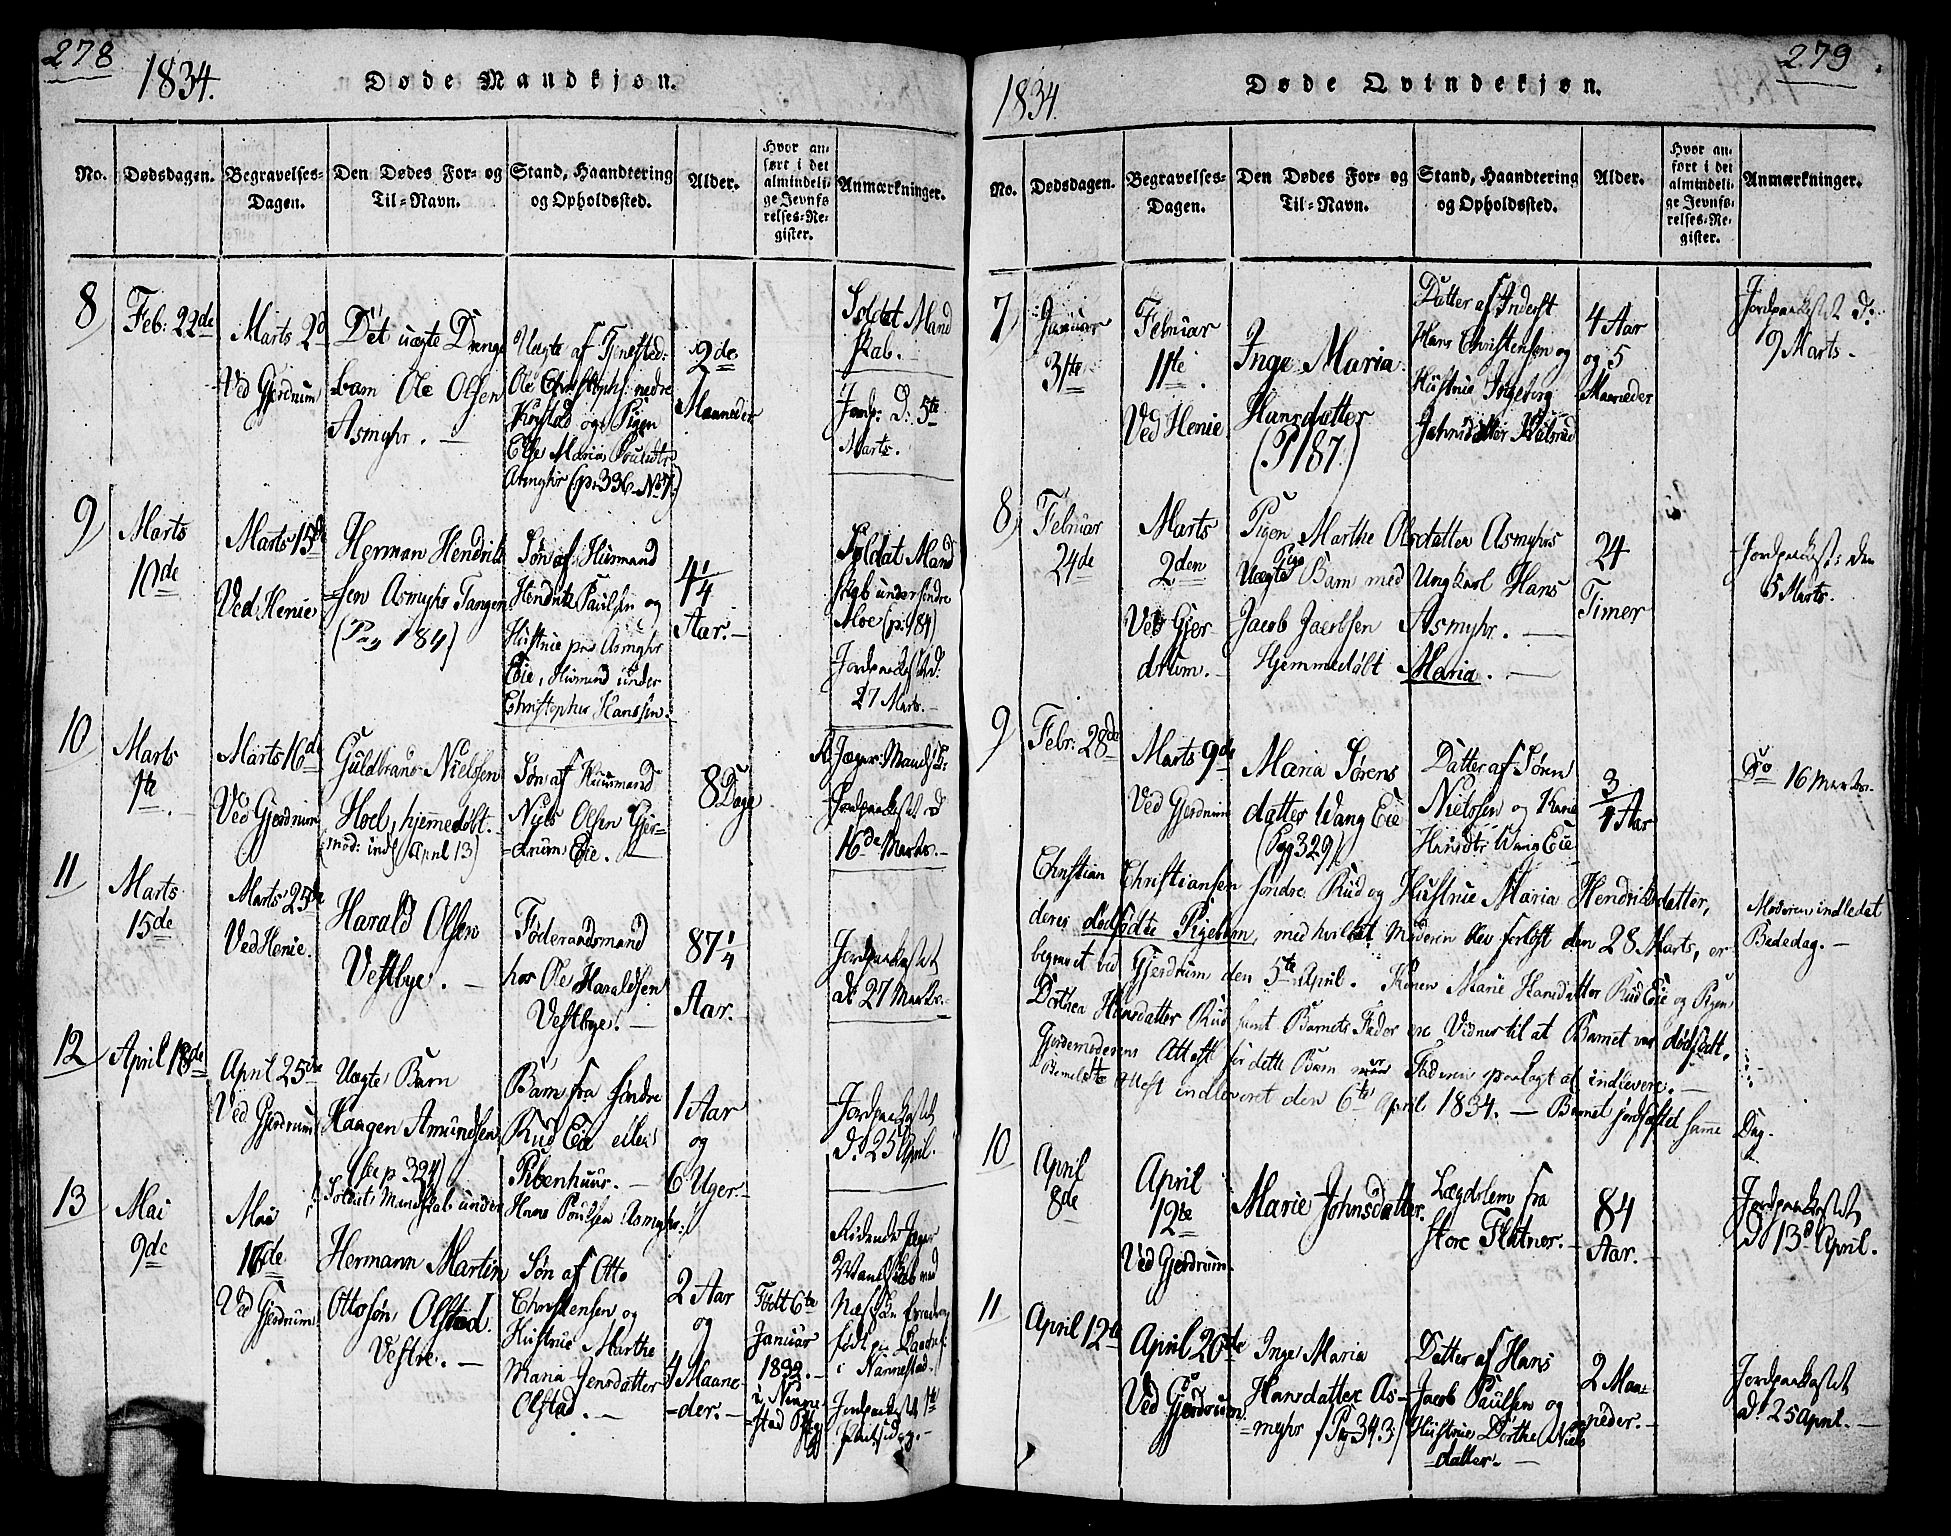 278
1834.
Døde Mandkjøn.
No.
Dødsdagen.
Begravelses-
Dagen.
Den Dødes For- og
Til-Navn.
Stand, Haandtering
og Opholdssted.
Alder.
Hvor an-
ført i det
almindeli-
ge Jevnfø-
relses-Re-
gister.
Anmærkninger.
8
Feb: 22de
Marts 2d
Ved Gjerdrum
Det uægte Drenge
barn Ole Olsen
Asmyhr. —
Uægte af
Ole Christophs: nedre
og Pigen
Else Maria Poulsdtr
Asmyhr (p: 336 No 7.)
2de
Maaneder
Soldat Mand
skab. —
Jordp: D: 5te
Marts.
9
Marts
10de
Marts 15de
Ved Henie
Herman Hendrik
sen Asmyhr Tangen
(Pag 184)
Søn af Huusmand
Hendrik Paulsen og
Hustrue paa Asmyhr
Eie, Huusmand under
Christopher Hanssen.
4 1/4
Aar. —
Soldat Mand
skab under søndre
Moe (p: 184)
Jordpaakastet d:
27 Marts. —
10
Marts
1te
Marts 16de
Ved Gjerdrum
Guldbrand Nielsen
Hoel, hjemmedøbt.
(mod: indf April 13)
Søn af Huusmand
Niels Olsen Gjer-
drum Eie. —
8 Dage
R. Jæger: Mandsk:
Jordpaakastet d
16de Marts. —
11
Marts
15de
Marts 25de
Ved Henie.
Harald Olsen
Vestbye. —
Føderaadsmand
hos Ole Haraldsen
Vestbye. —
87 1/4
Aar. —
Jordpaakastet
d: 27 Marts. —
12
April 18de
April 25de
Ved Gjerdrum
Uægte Barn
Haagen Amundsen
(see p 324)
Barn fra søndre
Rud Eie eller
Pibenhuus. —
1 Aar
og
6 Uger. —
Jordpaakastet
d: 25 April. —
Soldat: Mandskab under Hans Poulsen Asmyhr.
13
Mai
9de
Mai
16de
Ved Gjerdrum
Hermann Martin
Ottosøn Olstad
Vestre. —
Søn af Otto
Christensen og
Hustrue Marthe
Maria Jensdatter
Olstad. —
2 Aar
og
4 Maane-
der. —
Født 6te
Januar
1832. —
i Nanne-
stad
Ridende Jæger
Mandskab med
født paa
i Nannestad.
Jordpaakastet
279
1834.
Døde Qvindekjøn.
No.
Dødsdagen.
Begravelses-
Dagen.
Den Dødes For- og
Til-Navn.
Stand, Haandtering
og Opholdssted.
Alder.
Hvor an-
ført i det
almindeli-
ge Jevnfø-
relses-Re-
gister.
Anmærkninger.
7
Januar
31te
Februar
11te
Ved Henie
Inge Maria
Hansdatter
(P 187.)
Datter af Inderst
Hans Christensen og
Hustrue Ingeborg
Johnsdatter
4 Aar
og 5
Maaneder
Jordpaakastet d:
9 Marts. —
8
Februar
24de
Marts
2den
Ved Gjer-
drum. —
Pigen Marthe Olsdatter Asmyhrs
Uægte Pige Barn med Ungkarl Hans
Jacob Jacobsen Asmyhr. —
Hjemmedøbt Maria. —
24
Timer
Jordpaakast: den
5 Marts.
9
Febr: 28de
Marts 9de
Ved Gjerdrum
Maria Sørens
datter Wang Eie
(Pag 329)
Datter af Søren
Nielssen og Karie
Hansdtr Wang Eie
3/4 Aar
Do 16 Marts.
Christian Christiansen søndre Rud og Hustrue Maria Hendriksdatter,
deres dødfødte Pigebarn, med hvilket Moderen blev forløst den 28 Marts, er
begravet ved Gjerdrum den 5te April. Konen Marie Hansdatter Rud Eie og Pigen
Dorthea Hansdatter Rud samt Barnets Fader ere Vidner til at Barnet var dødfødt.
Gjordemoderens Attest for dette Barn er Faderen paalagt at indlevere. —
Bemeldte Attest indleveret den 6te April 1834. — Barnet jordfæstet samme Dag.
Moderen indledet
Bededag. —
10
April
8de
April
12te
Ved Gjerdrum.
Marie Johnsdatter.
Lægdslem fra
store Flatner. —
84
Aar. —
Jordpaakastet
D 13de April.
11
April 12te
April 20de
Ved Gjerdrum
Inge Maria
Hansdatter As-
myhr (Pag 343)
Datter af Hans
Jacob Paulsen og
Hustrue Dorthe Niels
datter. —
2 Maa-
neder. —
Jordpaakastet
d: 25 April. —